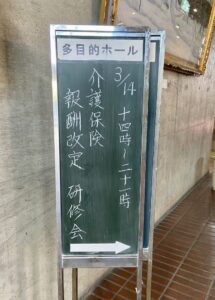 多目的ホール
3/14 十四時~二十一時
介護保険
報酬改定 研修会